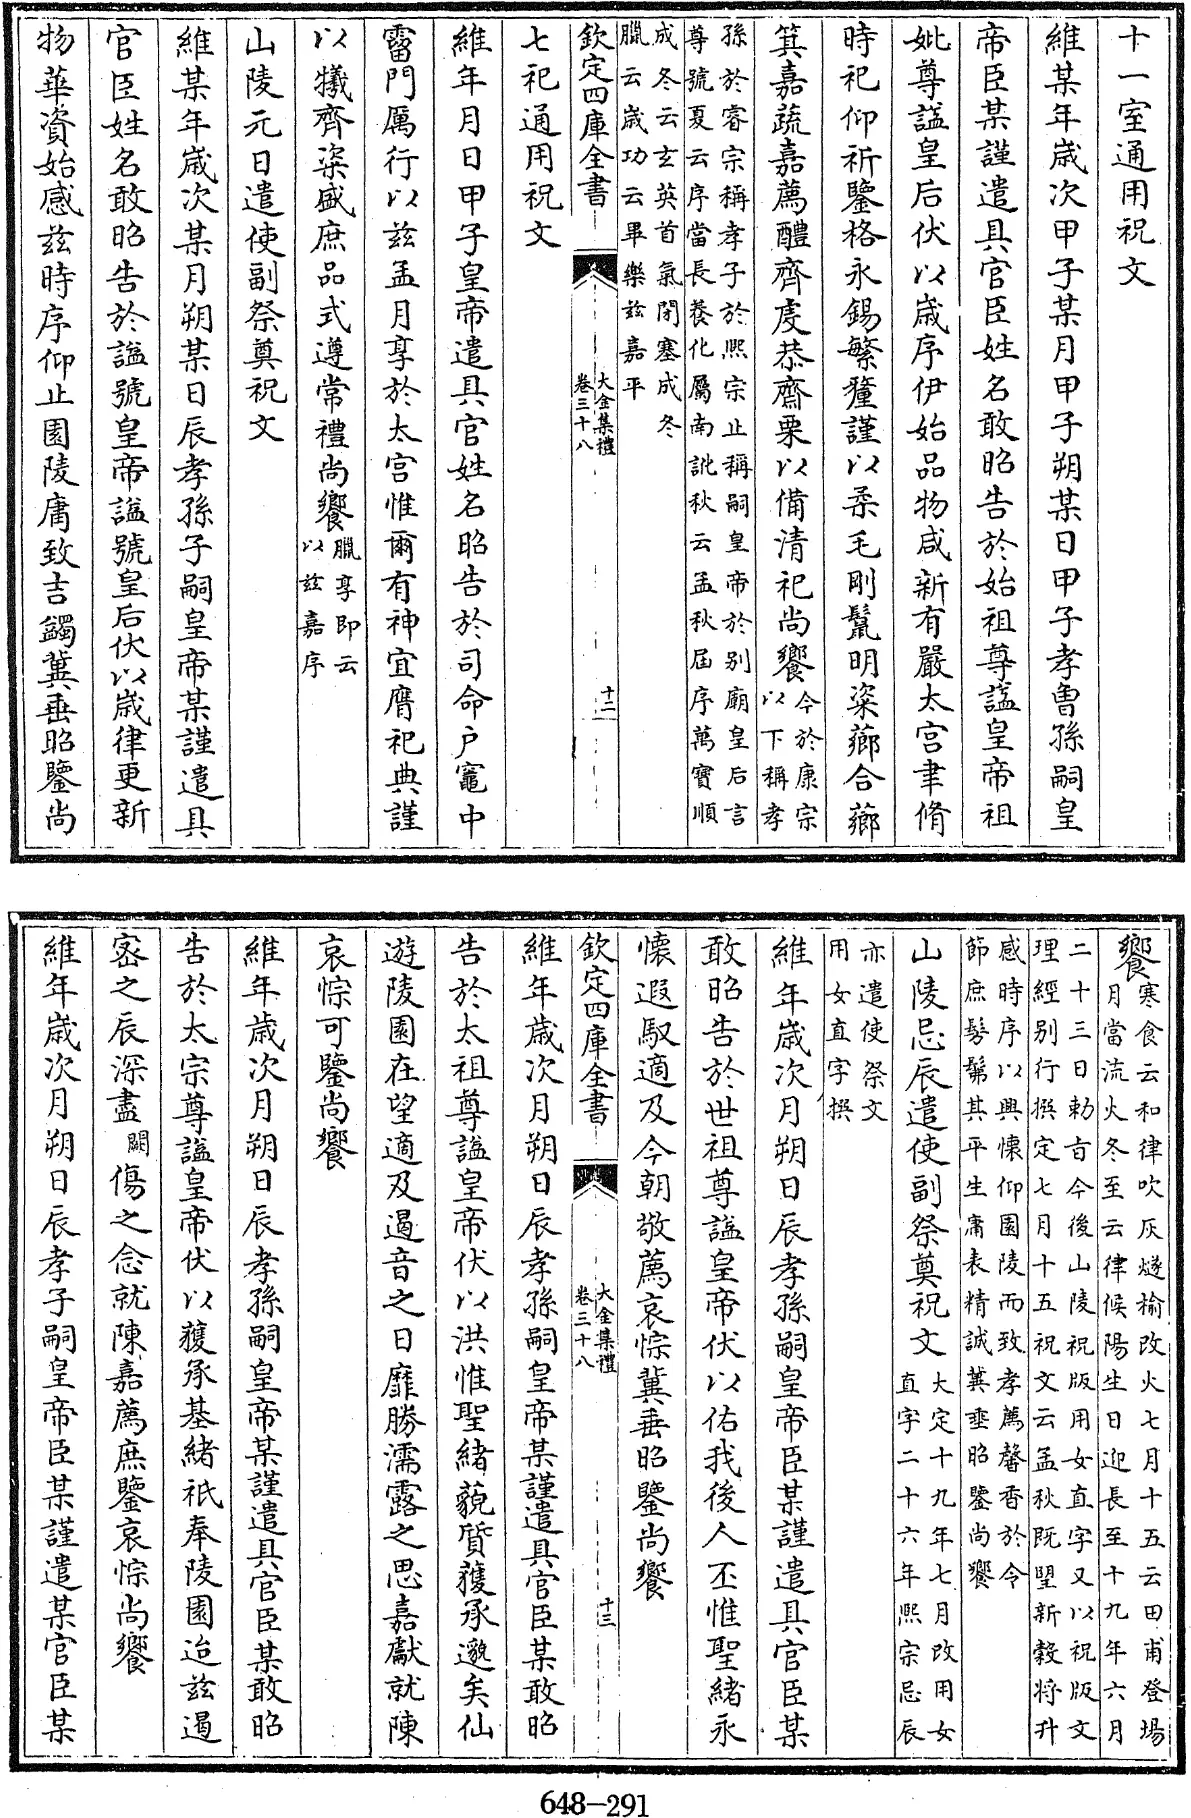 十一室通用祝文
維某年嵗次甲子某月甲子朔某日甲子孝曾孫嗣皇
帝臣某謹遣具官臣姓名敢昭告於始祖尊諡皇帝祖
妣尊諡皇后伏以嵗序伊始品物咸新有嚴太宫聿脩
時祀仰祈鑒格永錫繁釐謹以柔毛剛鬛明粢薌合薌
箕嘉蔬嘉薦醴齊虔恭齋栗以備清祀尚饗今於康宗
以下稱孝
孫於睿宗稱孝子於熙宗止稱嗣皇帝於别廟皇后言
尊號夏云序當長養化屬南訛秋云孟秋屆序萬寶順
成冬云玄英首氣閉塞成冬
臘云嵗功云畢樂兹嘉平
欽定四庫全書
大金集禮
卷三十八
十二
七祀通用祝文
維年月日甲子皇帝遣具官姓名昭告於司命户竈中
霤門厲行以兹孟月享於太宫惟爾有神宜膺祀典謹
以犧齊粢盛庶品式遵常禮尚饗臘享即云
以兹嘉序
山陵元日遣使副祭奠祝文
維某年嵗次某月朔某日辰孝孫子嗣皇帝某謹遣具
官臣姓名敢昭告於諡號皇帝諡號皇后伏以嵗律更新
物華資始感兹時序仰止園陵庸致吉蠲冀垂昭鑒尚
饗寒食云和律吹灰燧榆改火七月十五云田甫登場
月當流火冬至云律候陽生日迎長至十九年六月
二十三日勅旨今後山陵祝版用女直字又以祝版文
理經别行撰定七月十五祝文云孟秋既朢新穀將升
感時序以興懐仰園陵而致孝薦馨香於令
節庶髣髴其平生庸表精誠冀垂昭鑒尚饗
山陵忌辰遣使副祭奠祝文大定十九年七月改用女
直字二十六年熙宗忌辰
亦遣使祭文
用女直字撰
維年嵗次月朔日辰孝孫嗣皇帝臣某謹遣具官臣某
敢昭告於世祖尊諡皇帝伏以佑我後人丕惟聖緒永
懐遐馭適及今朝敬薦哀悰冀垂昭鑒尚饗
欽定四庫全書
大金集禮
卷三十八
十三
維年嵗次月朔日辰孝孫嗣皇帝某謹遣具官臣某敢昭
告於太祖尊諡皇帝伏以洪惟聖緒藐質獲承邈矣仙
遊陵園在望適及遏音之日靡勝濡露之思嘉獻就陳
哀悰可鑒尚饗
維年嵗次月朔日辰孝孫嗣皇帝某謹遣具官臣某敢昭
告於太宗尊諡皇帝伏以獲承基緒祇奉陵園迨兹遏
宻之辰深盡闕傷之念就陳嘉薦庶鑒哀悰尚饗
維年嵗次月朔日辰孝子嗣皇帝臣某謹遣某官臣某
648-291